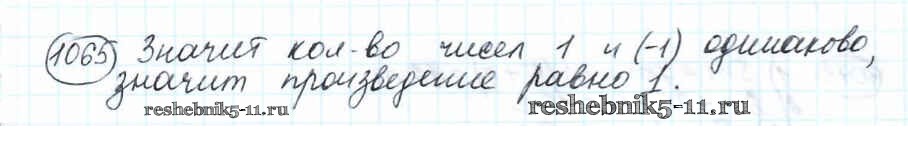 1065 Значит кол-во чисел 1 и (-1) одинаково,
значит произведение равно 1.
reshebnik5-11.ru
reshebnik5-11.ru